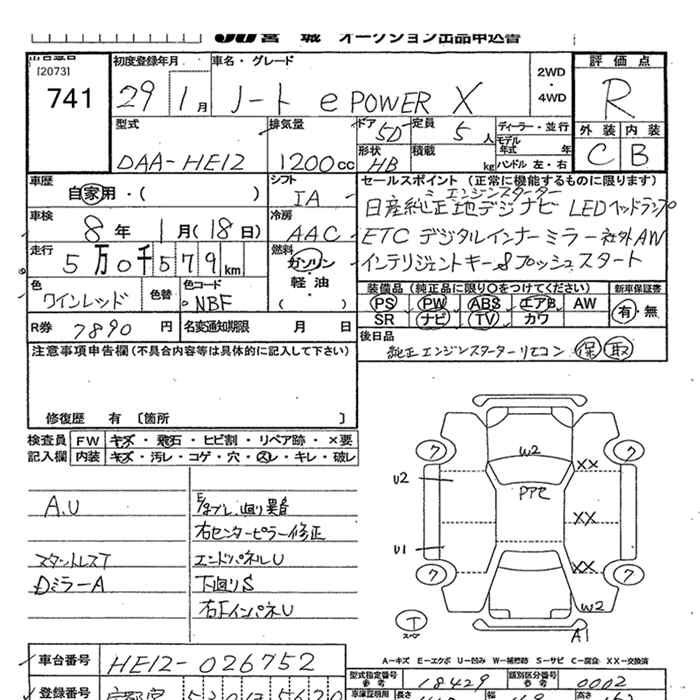 JU 宮城 オークション出品申込書
出品番号
[2073]
741
初度登録年月
29 1月
車名・グレード
ノート e POWER X
2WD
・
4WD
評価点
R
外装 内装
C B
型式
DAA-HE12
排気量
1200cc
ドア 5D
定員 5人
形状 HB
積載 kg
ディーラー・並行
モデル年式 年
ハンドル 左・右
車歴
自家用・( )
シフト
IA
車検
8年 1月(18日)
冷房
AAC
走行
5万0千579km
燃料
ガソリン
・
軽油
( )
色
ワインレッド
色替
色コード
NBF
R券 7890円
名変通知期限 月 日
セールスポイント (正常に機能するものに限ります)
エンジンスターター
日産純正地デジナビ LEDヘッドランプ
ETC デジタルインナーミラー 社外AW
インテリジェントキー&プッシュスタート
装備品 (純正品に限り○をつけてください)
PS PW ABS エアB AW
SR ナビ TV カワ
新車保証書
有・無
後日品
純正エンジンスターターリモコン 保 取
注意事項申告欄 (不具合内容等は具体的に記入して下さい)
修復歴 有 [箇所 ]
検査員記入欄
FW キズ・飛石・ヒビ割・リペア跡・×要
内装 キズ・汚レ・コゲ・穴・スレ・キレ・破レ
A.U
スタットレスT
Dミラー A
右センターピラー修正
エンドパネルU
下廻りS
右FインパネU
7 7
U2
W2
XX
PPセ
XX
U1
XX
7 7
W2
T
スペア
A1
A―キズ E―エクボ U―凹み W―補修跡 S―サビ C―腐食 XX―交換済
車台番号 HE12-026752
型式指定番号 参考 18429
類別区分番号 参考 0002
登録番号
車庫証明用 長さ 幅 高さ